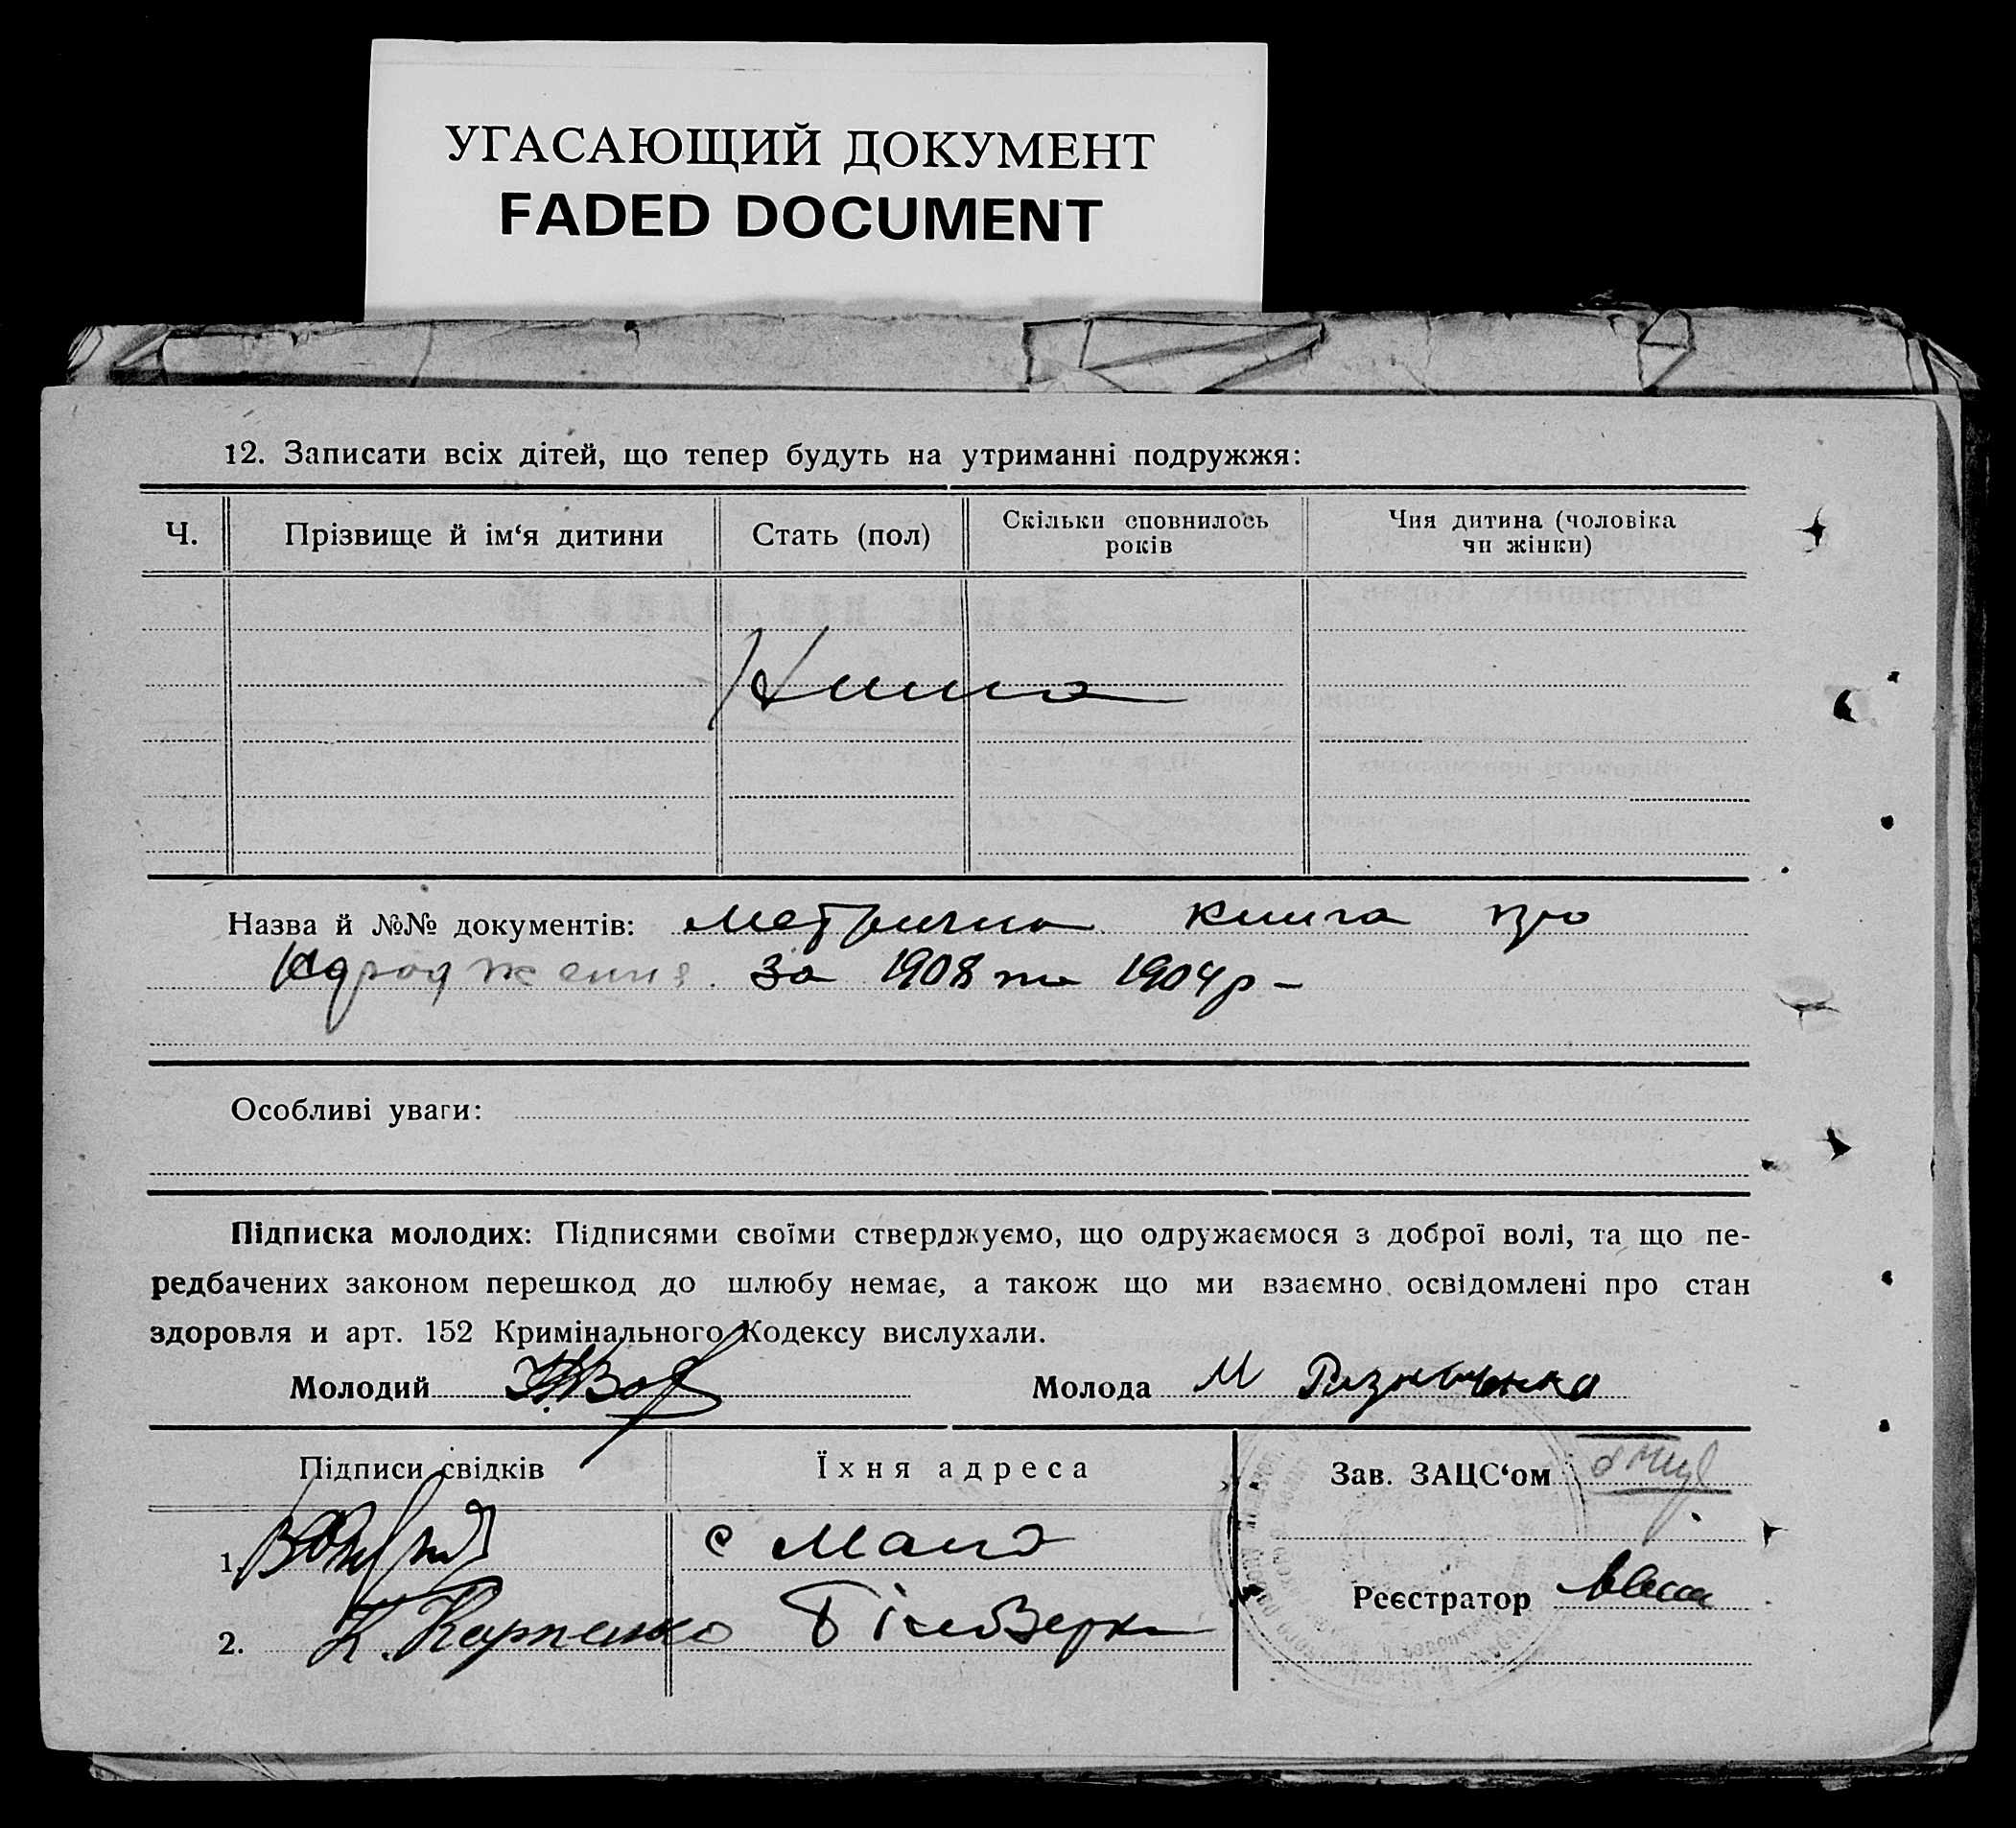 УГАСАЮЩИЙ ДОКУМЕНТ
FADED DOCUMENT
12. Записати всіх дітей, що тепер будуть на утриманні подружжя:
Ч.
Прізвище й ім‘я дитини
Стать (пол)
Скільки сповнилось
років
Чия дитина (чоловіка
чи жінки)
Назва й №№ документів: метрична книга про
народження за 1908 та 1904р –
Особливі уваги:
Підписка молодих: Підписями своїми стверджуємо, що одружаємося з доброї волі, та що пе-
редбачених законом перешкод до шлюбу немає, а також що ми взаємно освідомлені про стан
здоровля и арт. 152 Кримінального Кодексу вислухали.
Молодий
Молода М
Підписи свідків
Їхня адреса
Зав. ЗАЦС‘ом
1.
с
Реєстратор
2. К. Карпенко